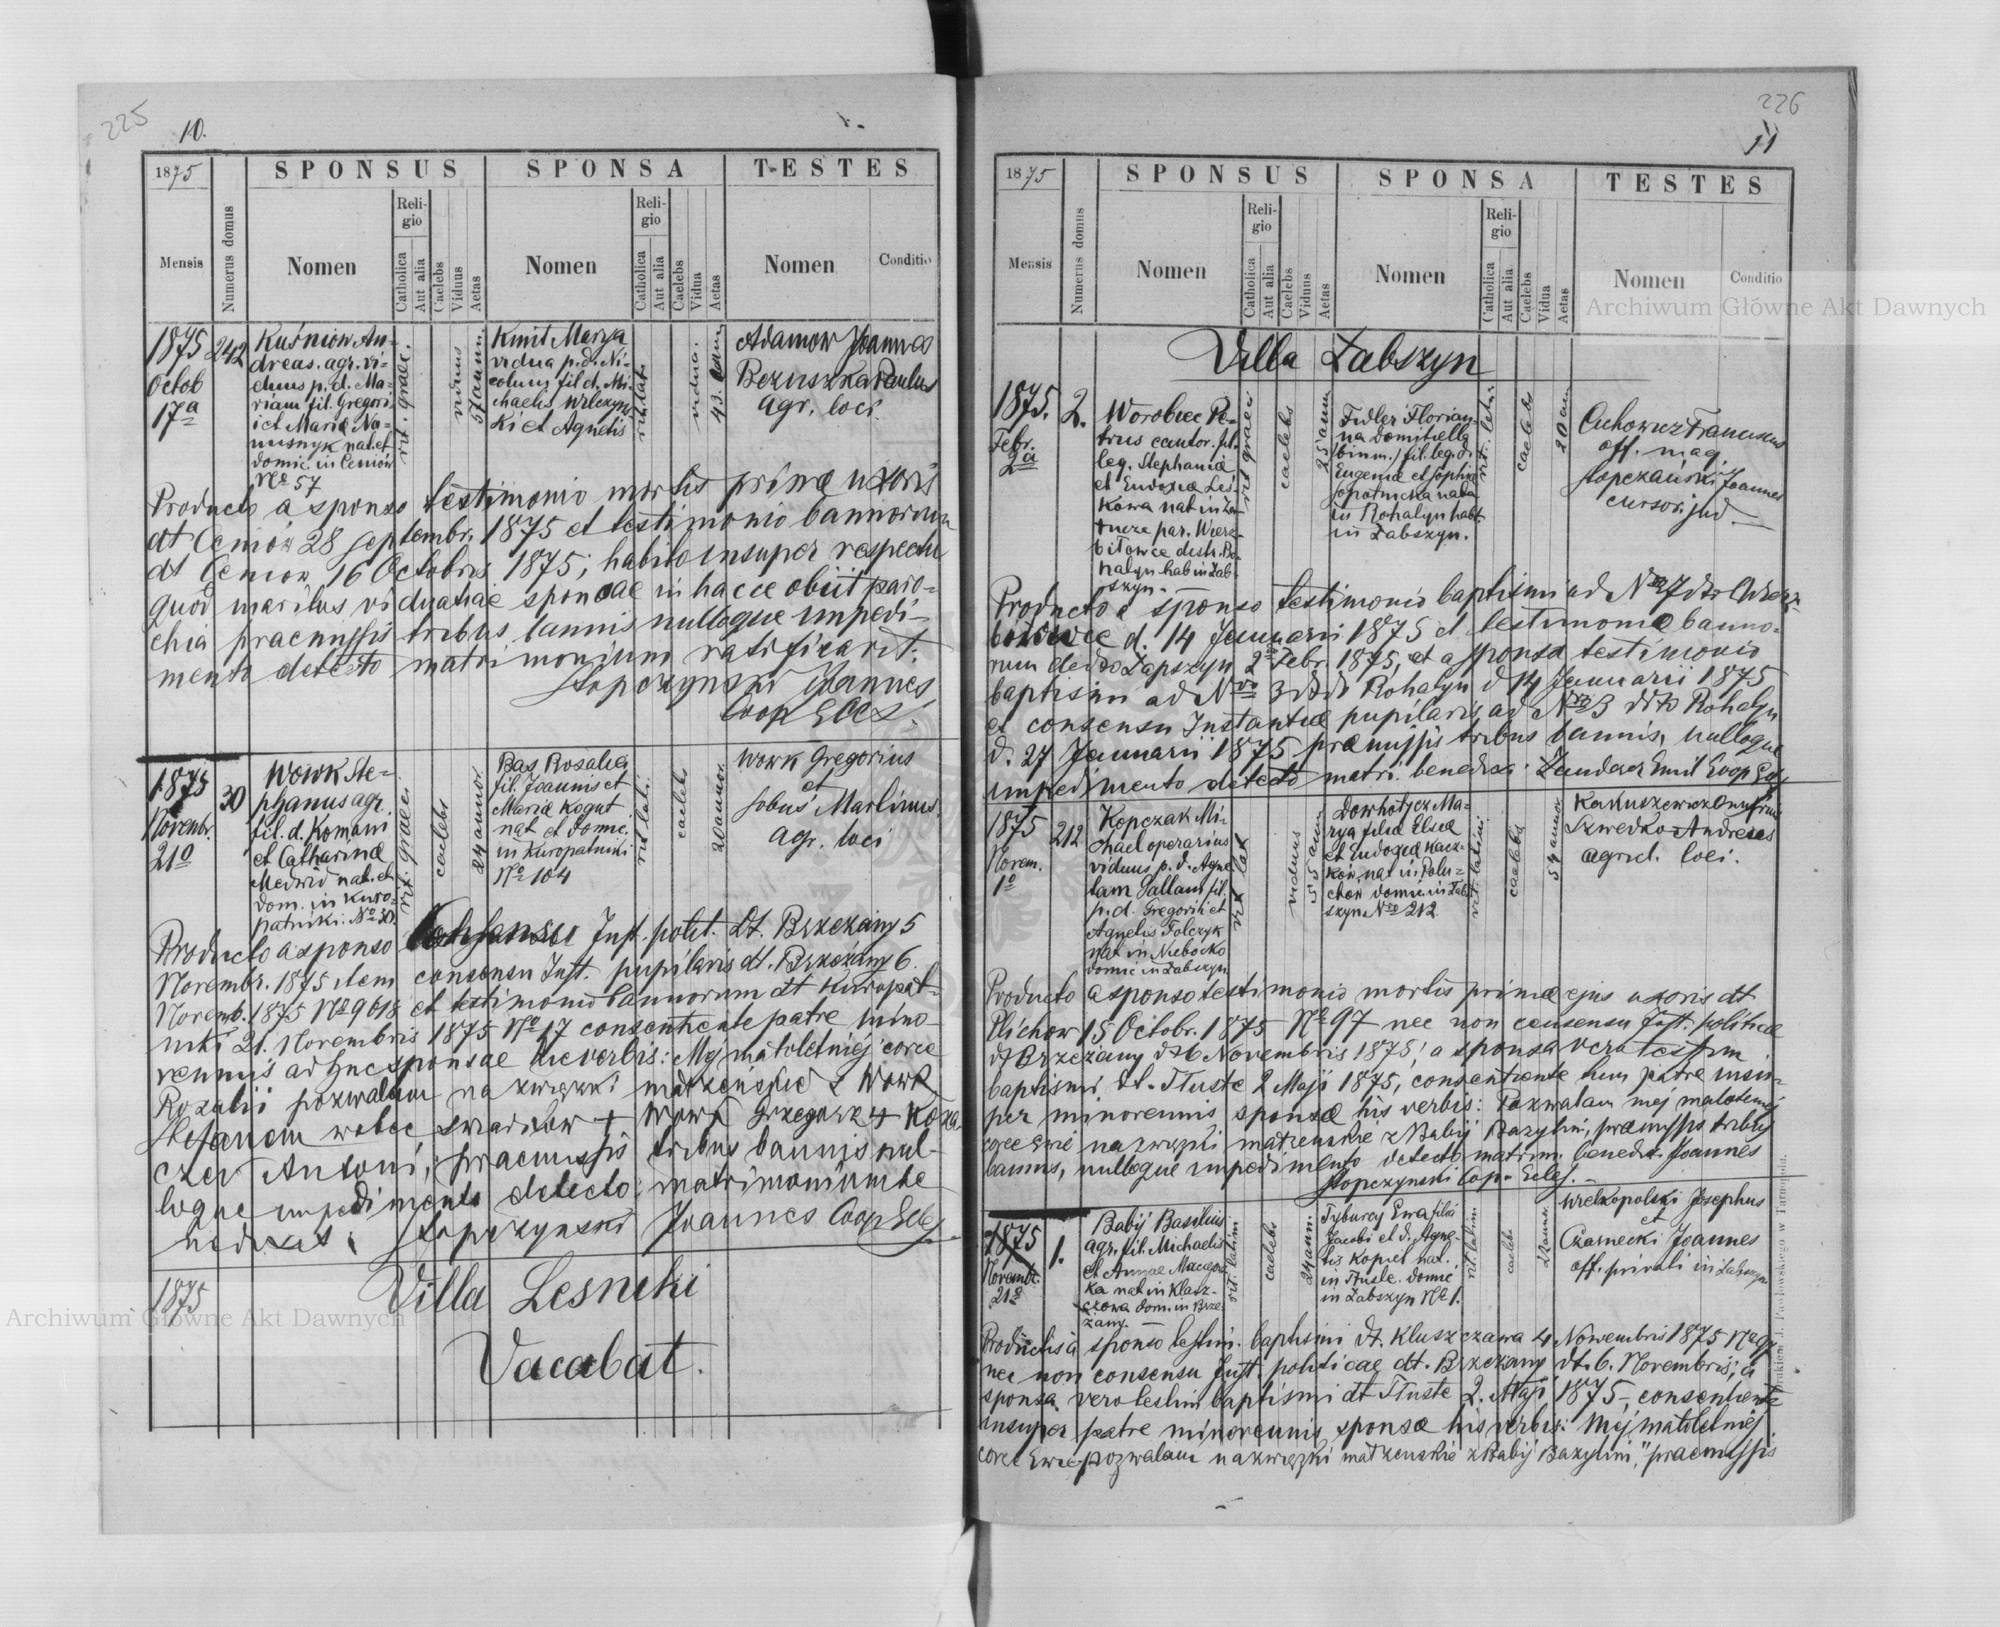 225
10.
1875
SPONSUS
SPONSA
TESTES
Mensis
Numerus domus
Nomen
Reli-
gio
Catholica
Aut alia
Caelebs
Viduus
Aetas
Nomen
Reli-
gio
Catholica
Aut alia
Caelebs
Vidua
Aetas
Nomen
Conditio
1875
Octob
17a
242
Kuśniow An-
dreas. agr. vi-
duus p. d. Ma-
riam fil. Gregori
i et Maria Na-
nat. et
domic. in Ceniów
No 57
rit. graec.
viduus
57 annor.
Kmit Marya
vidua p. d. Ni-
colaum fil d. Mi-
chaelis Wilczyńs-
ki et Agnetis
rit. lat.
vidua.
43. ann
Adamow Joannes
Bezuszka Paulus
agr. loci.
Producto a sponso testimonio mortis primae uxoris
dt Ceniów 28 Septembr. 1875 et testimonio bannorum
dt Ceniow 16 Octobris 1875; habito insuper respectu
quod maritus viduatae sponsae in hacce obiit paro-
chia praemissis tribus bannis nulloque impedi-
mento detecto matrimonium ratificavit.
Stopczynski Joannes
Coop Eccl.
1875
Novembr.
21o
30
Wowk Ste-
phanus agr.
fil. d. Romani
et Catharina
Medwid nat. et
dom. in Kuro-
patniki. No 30.
rit. graec
caelebs
24 annor
Bas Rosalia
fil. Joannis et
Maria Kogut
nat et domic.
in Kuropatniki
No 104
rit lati.
caelebs
20 annor
Wowk Gregorius
et
Sobuś Martinus.
agr. loci
Producto a sponso Consensu Inst. polit. dt. Brzeżany 5
Novembr. 1875 item consensu Inst. pupilaris dt. Brzeżany 6
Novemb. 1875 No 9618 et testimonio bannorum dt Kuropat-
niki 21. Novembris 1875 No 17 consentiente patre mino-
rennis adhuc sponsae hic verbis: Mej małoletniej corce
Rozalii pozwalam na związki małżeńskie z Wowk
Stefanem wobec swiadków + Wowk Grzegorz + Koza
czew Antoni, praemissis tribus bannis nul-
loque impedimento detecto matrimonium be
nedixit: Stopczynski Joannes Coop Eccl
1875
Villa Lesniki
Vacabat.
226
11
1875
SPONSUS
SPONSA
TESTES
Mensis
Numerus domus
Nomen
Reli-
gio
Catholica
Aut alia
Caelebs
Viduus
Aetas
Nomen
Reli-
gio
Catholica
Aut alia
Caelebs
Vidua
Aetas
Nomen
Conditio
Villa Labszyn
1875.
Febr.
2a
2.
Worobiec Pe-
trus cantor. fil.
leg. Stephania
et Eudoxia Leś-
kowa nat in Za-
par. Wierz-
biłowce distr. Ro-
halyn hab in Łab-
szyn.
rit graec
caelebs
25 ann
Fidler Florian-
na Domitella
(binm.) fil. leg. d.
Eugenia et Sophia
Sopotnicka nata
in Rohalyn habt.
in Labszyn.
rit. latin.
caelebs
20 an
Cichowicz Franciscus
off. mag.
Stopczański Joannes
cursor. jud.
Producto a sponso testimonio baptismi ad No 7 dto Wierz-
bołowce d. 14 Januarii 1875 et testimonio banno-
rum de dto Lapszyn 2 Febr. 1875, et a sponsa testimonio
baptismi ad No 3 dt Rohalyn d 14 Januarii 1875
et consensu Instantiae pupilaris ad No 3 dto Rohalyn
d. 27 Januarii 1875 praemissis tribus bannis, nulloque
impedimento detecto matri. benedixi: Emil Coop Eccl
1875
Novem.
1o
212
Kopczak Mi-
chael operarius
viduus p. d. Agne
tam Sallam fil.
p. d. Gregorii et
Agnetis Tolczyk
nat in Niebocko
domic in Labszyn
rit lat
viduus
55 ann
Dowhołycz Ma-
rya filia Elia
et Eudoxia Kacz-
ków, nat in Połu-
chow domic. in Łab-
szyn No 212
rit. latini
caelebs
54 annor
Kakuszewicz Onufrius
Szwedko Andreas
agricl. loci.
Producto a sponso testimonio mortis primae ejus uxoris dt
Plichow 15 Octobr. 1875 No 97 nec non consensu Inst. politicae
dt Brzeżany dt 6 Novembris 1875; a sponsa vero testim
baptismi dt. Tłuste 2 Maji 1875, consentiente hum patre insu-
per minorennis sponsae his verbis: Pozwalam mej małoletniej
corce Ewie na związki małżenskie z Babij Bazylim, praemissis tribus
bannis, nulloque impedimento detecto matrim. benedxt. Joannes
Stopczynski Cop. Eccl.
1875
Novemb.
21o
1.
Babij Basilius
agr. fil. Michaelis
et Annae Macyow-
ka nat in Klusz-
czowa dom. in Brze-
żany.
rit. latini
caelebs
24 ann.
Tyburcy Ewa filia
Jacobi et d. Agne-
tis Kopiet nat.
in Tłuste. domic
in Labszyn No 1.
rit. latini
caelebs
22 ann.
Wielkopolski Josephus
et
Czarnecki Joannes
off. privati in Labszyn
Productis a sponso testim. baptismi dt. Kluszczawa 4 Novembris 1875 No 97
nec non consensu Inst. politicae dt. Brzeżany dt. 6. Novembris; a
sponsa. vero testim baptismi dt Tłuste 2. Maji 1875, consentiente
insuper patre minorennis sponsae his verbis: Mej małoletniej
corce Ewie pozwalam na związki małżenskie z Babij Bazylim," praemissis
Drukiem J. Pawłowskiego w Tarnopolu.
Archiwum Główne Akt Dawnych
Archiwum Główne Akt Dawnych